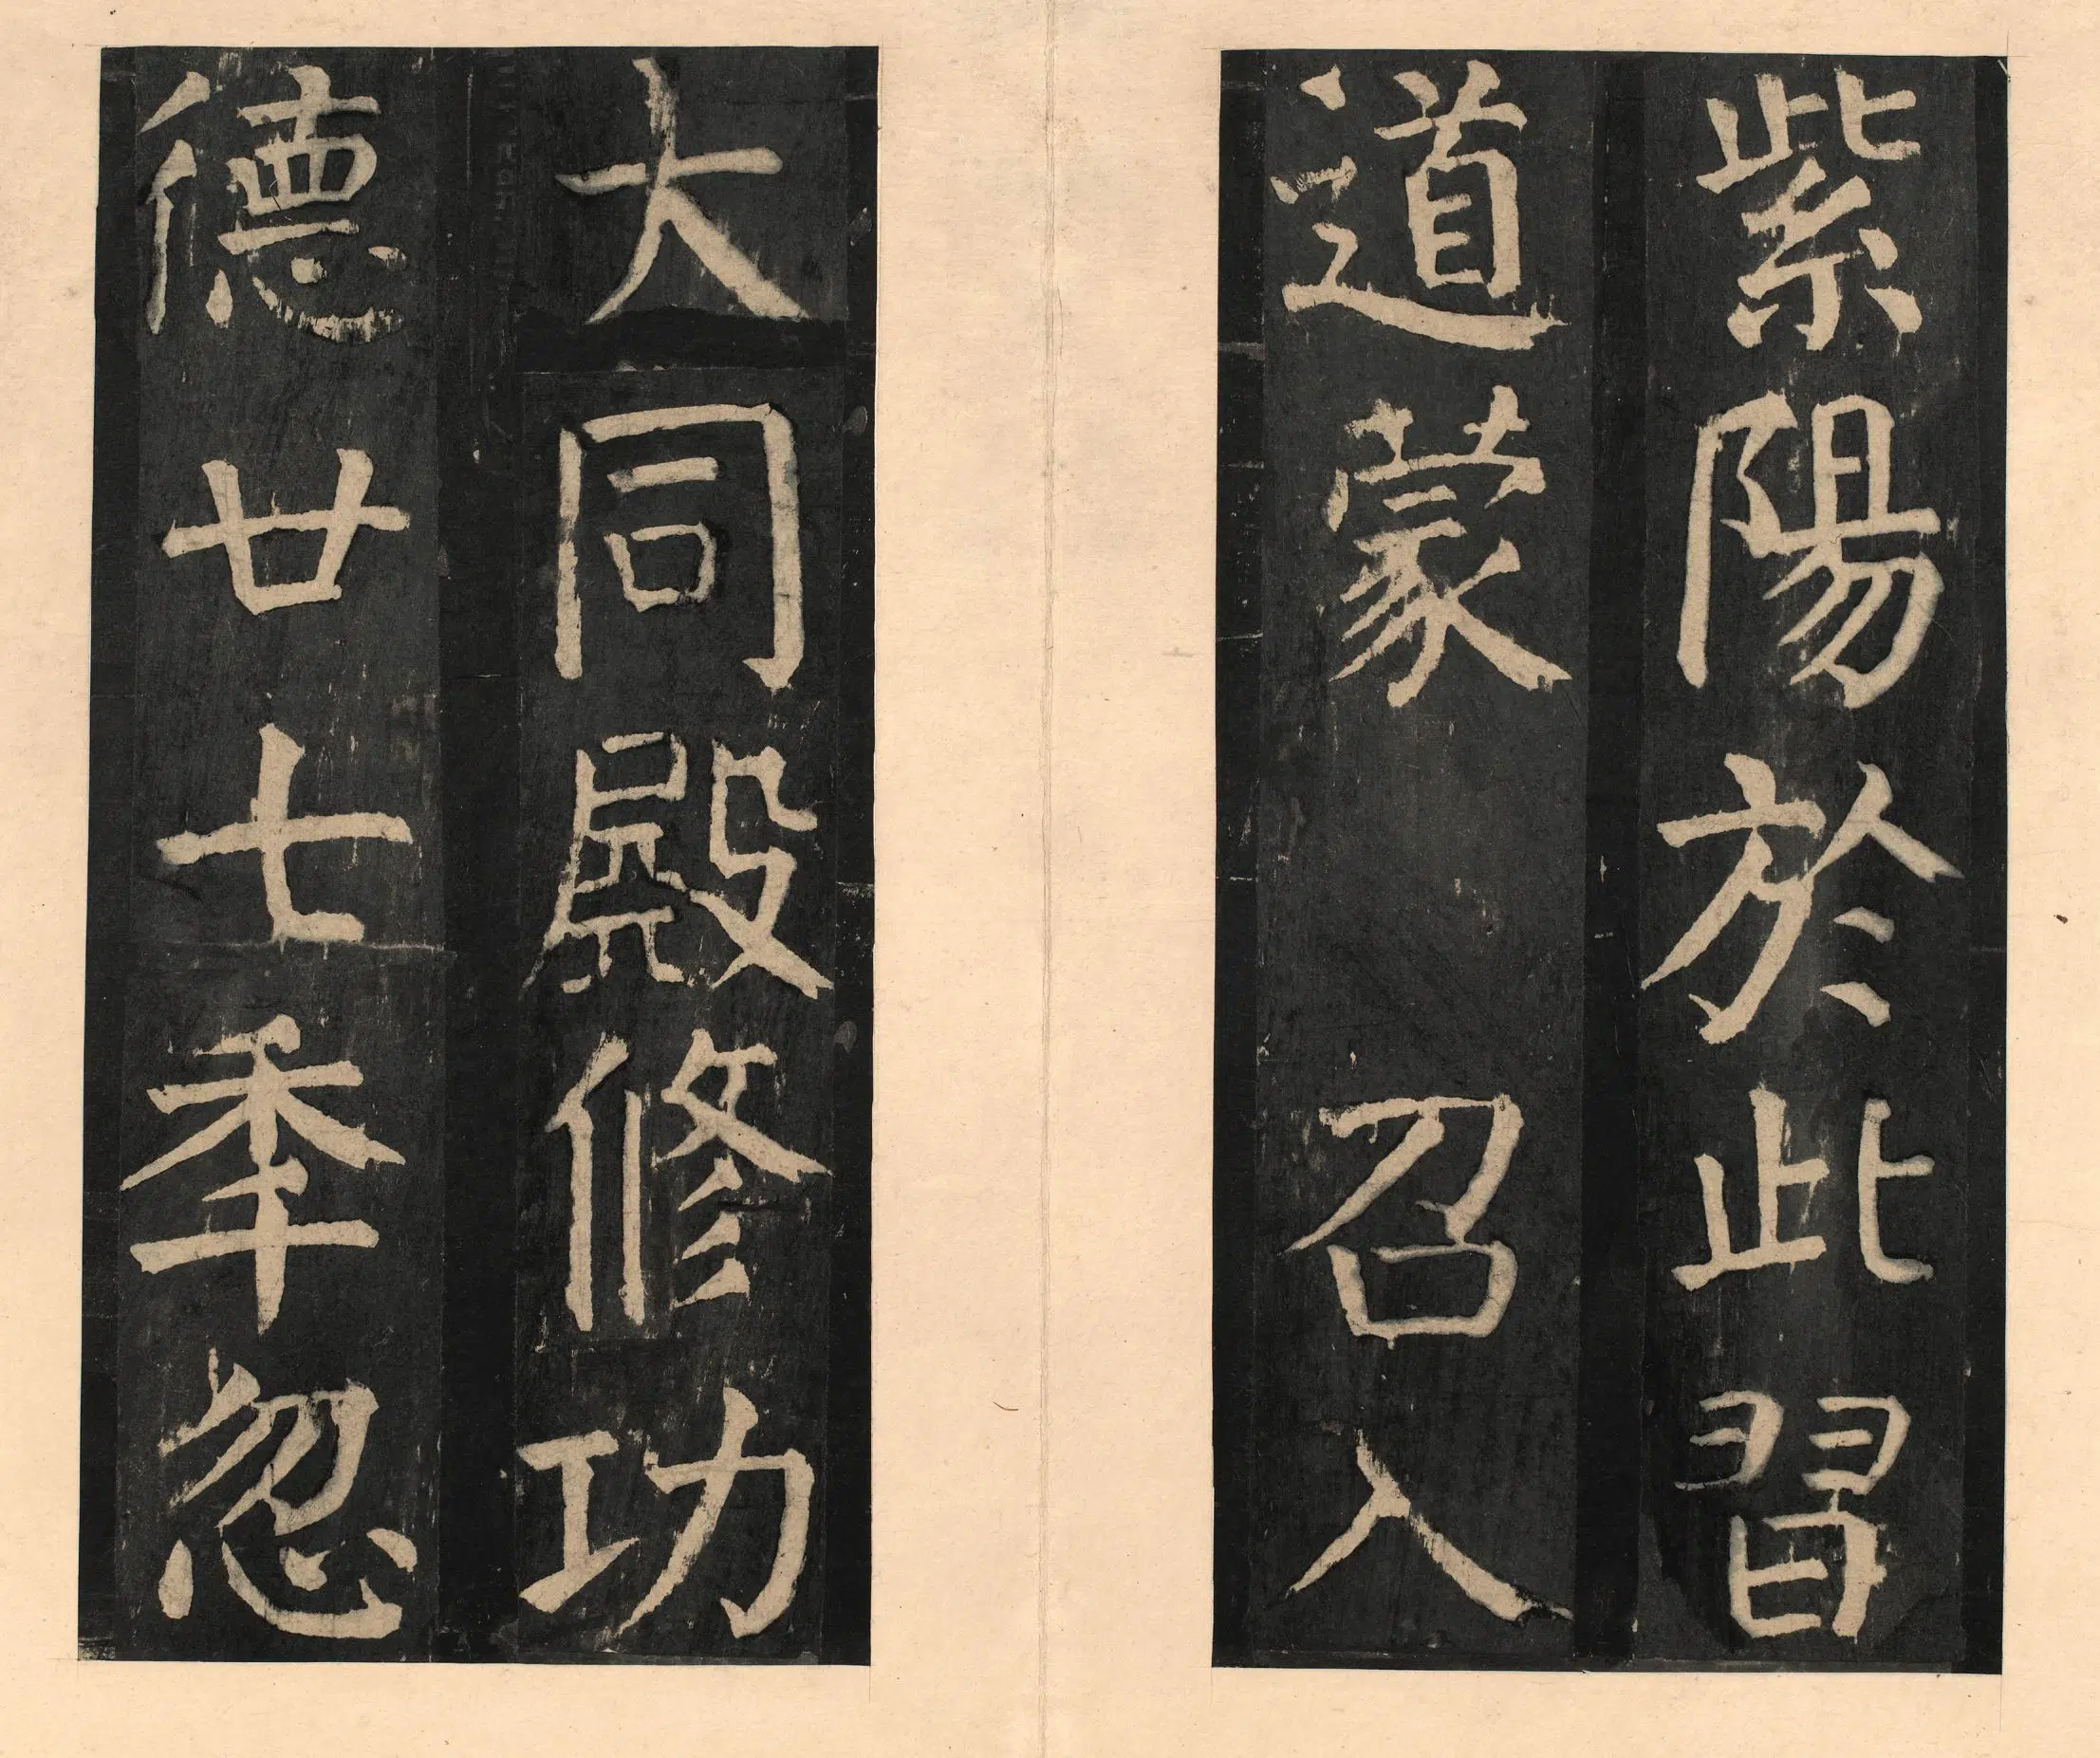 紫陽於此習
道蒙　召入
大同殿修功
德廿七秊忽